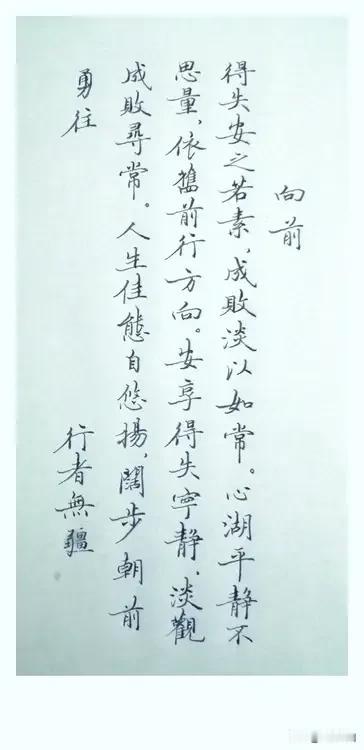 向前
得失安之若素，成敗淡以如常。心湖平静不
思量，依舊前行方向。安享得失宁静，淡觀
成敗尋常。人生佳態自悠揚，闊步朝前
勇往
行者無疆